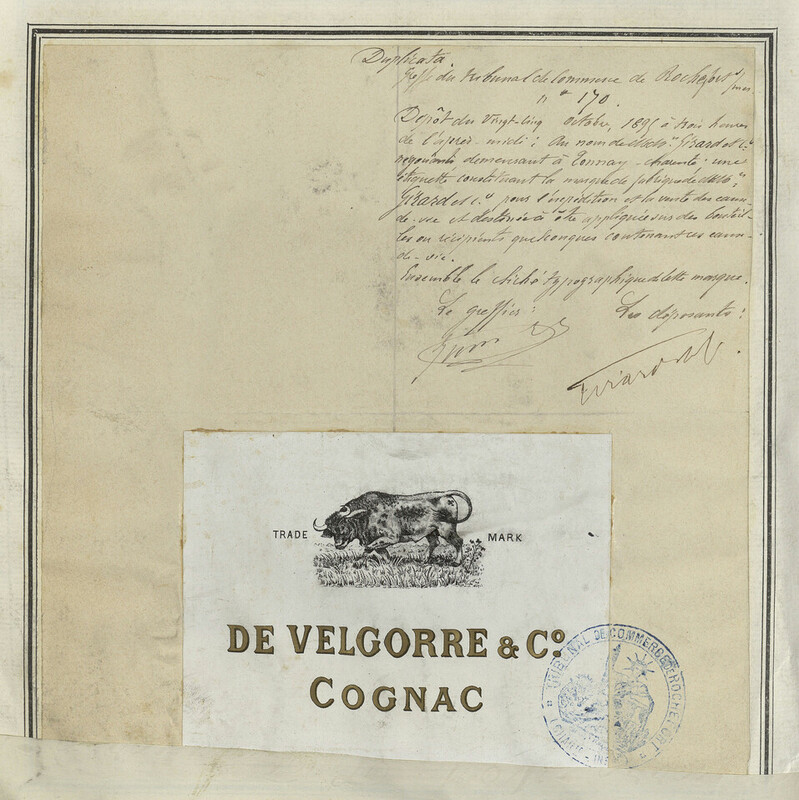 Duplicata.
Greffe du tribunal de Commerce de Rochefort s/ mer.
n° 170.
Dépôt du vingt-cinq octobre, 1895 à trois heures
de l'après-midi; au nom de Girard et Cie
négociants demeurant à Tonnay-Charente: une
étiquette constituant la marque de fabrique de
Girard et Cie pour l'expédition et la vente des eaux-
de-vie et destinée à être appliquée sur des bouteil-
les ou récipients quelconques contenant ces eaux-
de-vie.
Ensemble le cliché typographique de cette marque.
Le greffier: Les déposants:
Girard et Cie
TRADE MARK
DE VELGORRE & Cº
COGNAC
TRIBUNAL DE COMMERCE DE ROCHEFORT